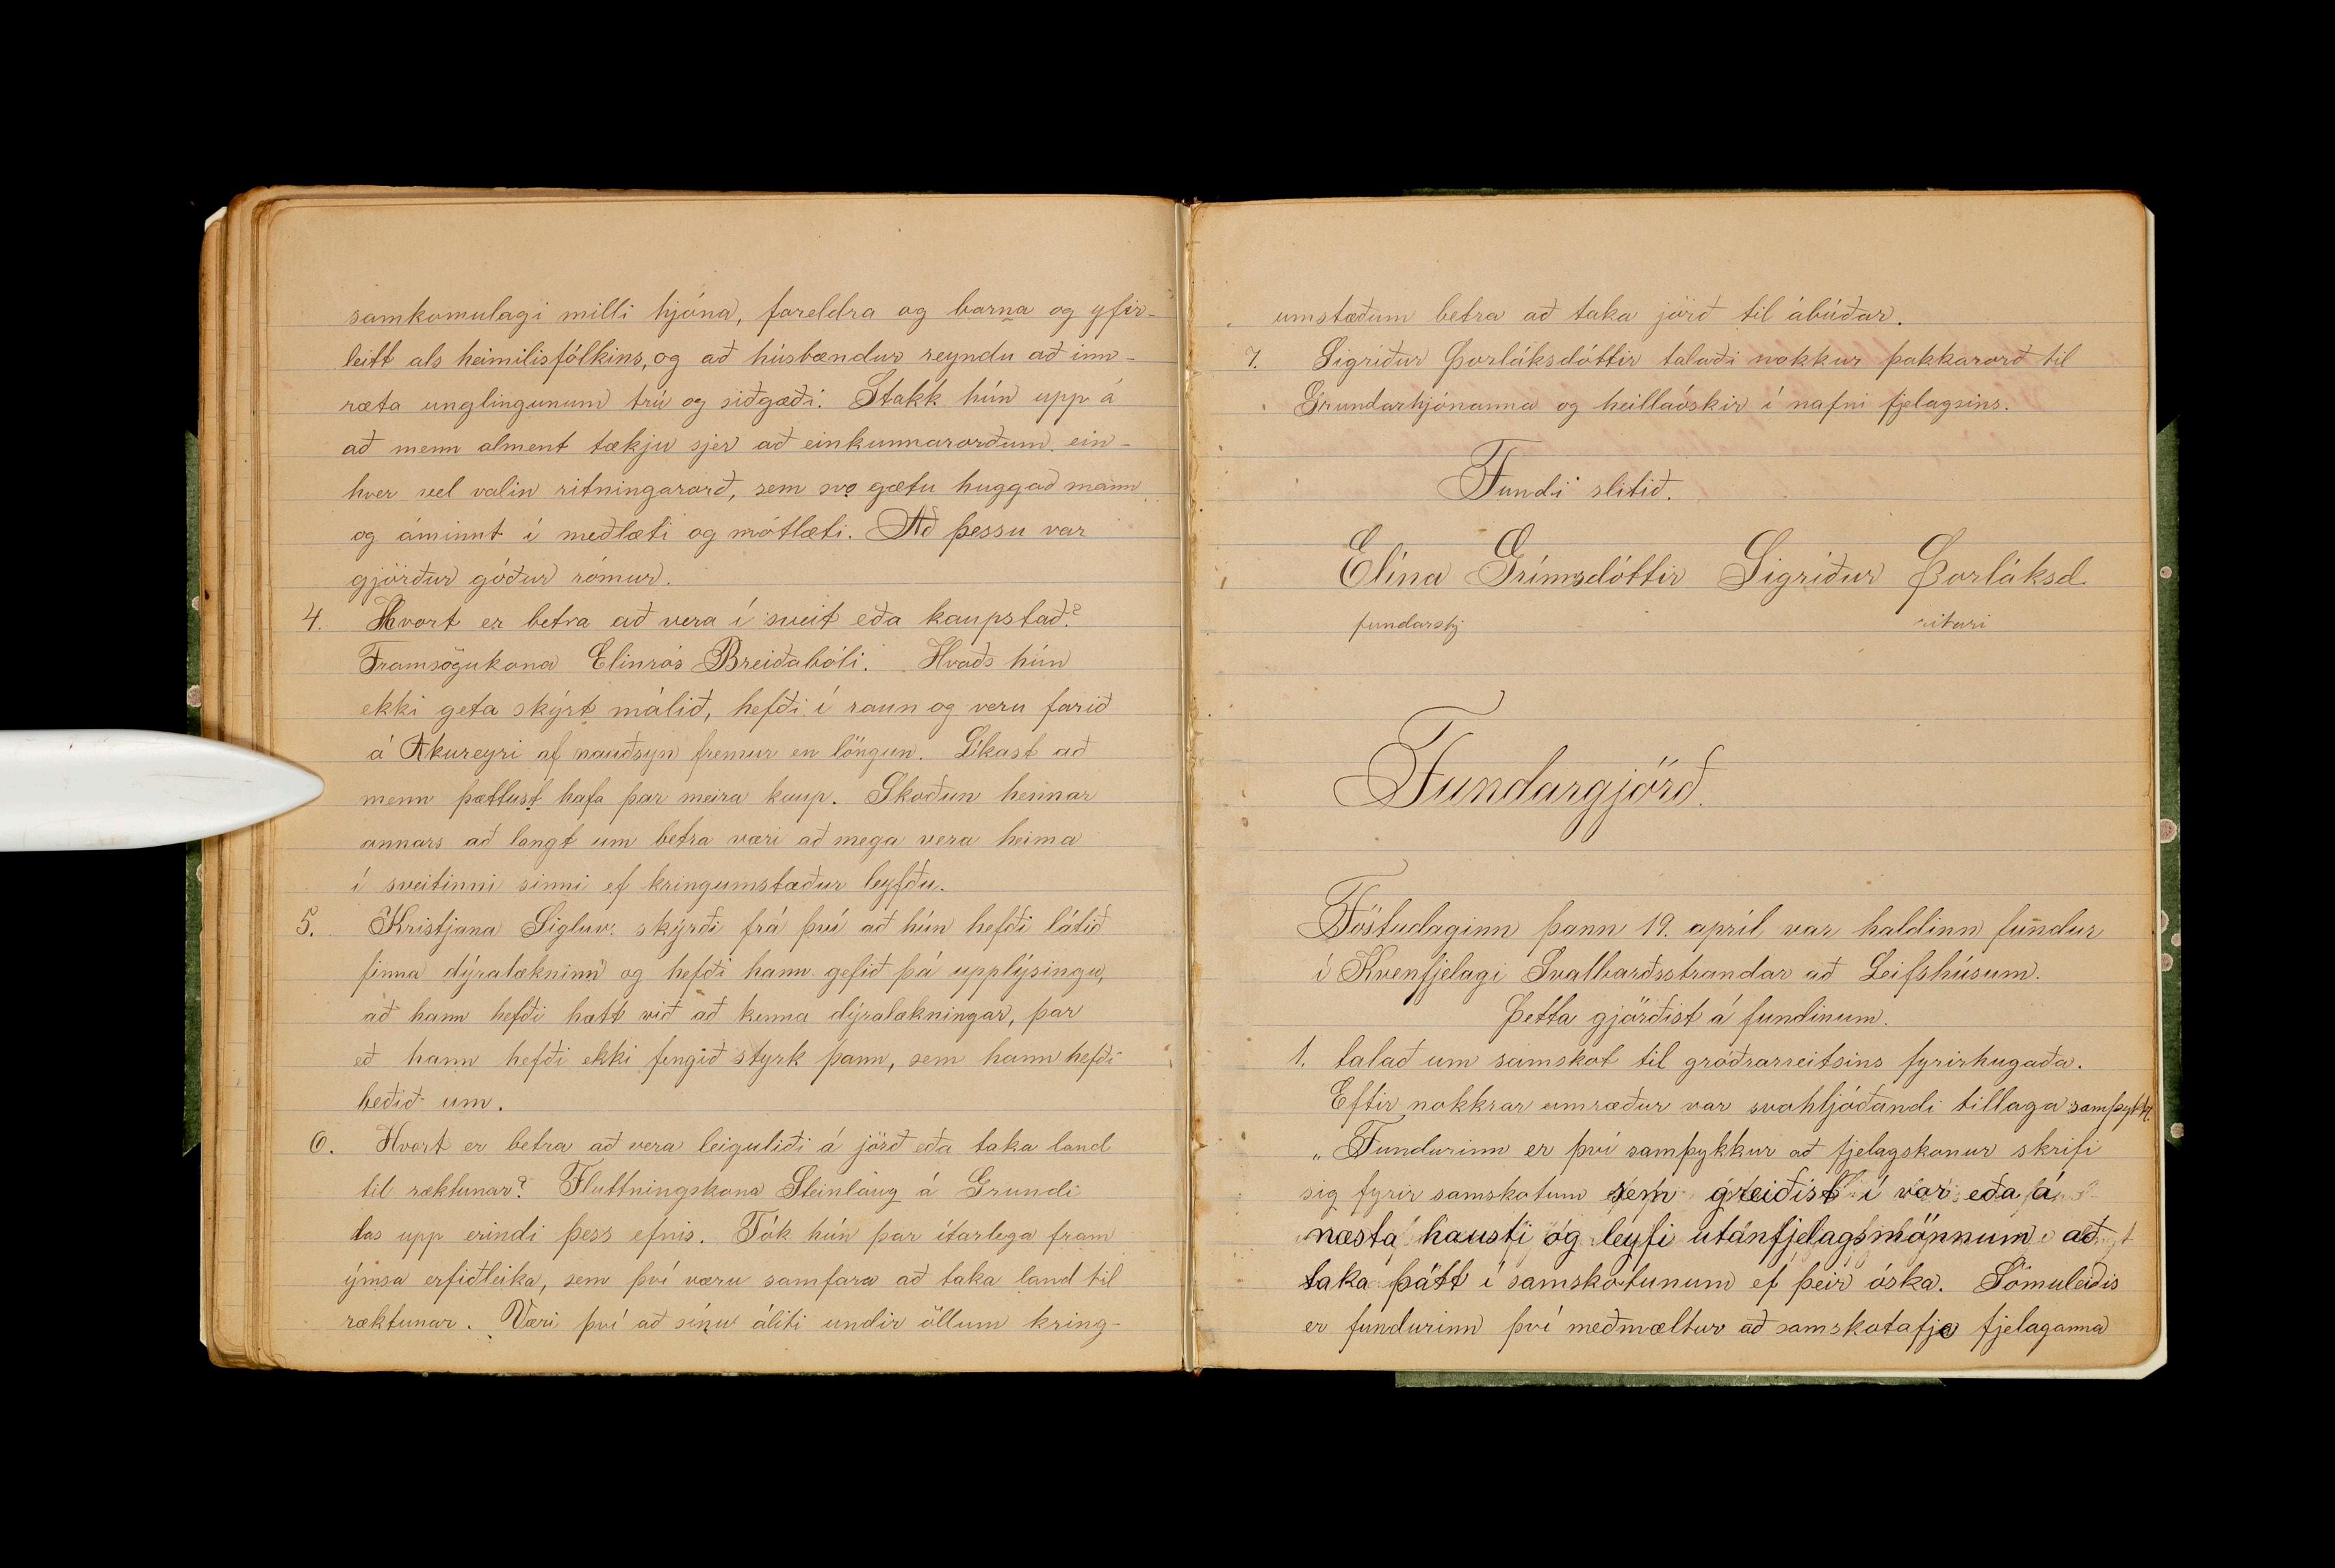 samkomulagi milli hjóna, foreldra og barna og yfir-
leitt als heimilisfólkins, og að húsbændur reyndu að inn-
ræta unglingunum trú og siðgæði. Stakk hún upp á
að menn alment tækju sjer að einkunnarorðum ein-
hver vel valin ritningarorð, sem svo gætu huggað mann
og áminnt í meðlæti og mótlæti. Að þessu var
gjörður góður rómur.
4. Hvort er betra að vera í sveit eða kaupstað?
Framsögukona Elinrós Breiðabóli. Kvaðs hún
ekki geta skýrt málið, hefði í raun og veru farið
á Akureyri af nauðsyn fremur en löngun. Líkast að
menn þættust hafa þar meira kaup. Skoðun hennar
annars að langt um betra væri að mega vera heima
í sveitinni sinni ef kringumstæður leyfðu.
5. Kristjana Sigluv. skýrði frá því að hún hefði látið
finna dýralækninn og hefði hann gefið þá upplýsingu,
að hann hefði hætt við að kenna dýralækningar, þar
eð hann hefði ekki fengið styrk þann, sem hann hefði
beðið um.
6. Hvort er betra að vera leiguliði á jörð eða taka land
til ræktunar? Fluttningskona Steinlaug á Grund
las upp erindi þess efnis. Tók hún þar ítarlega fram
ýmsa erfiðleika, sem því væru samfara að taka land til
ræktunar. Væri því að sínu áliti undir öllum kring-
umstæðum betra að taka jörð til ábúðar.
7. Sigríður Þorláksdóttir talaði nokkur þakkarorð til
Grundarhjónanna og heillaóskir í nafni fjelagsins.
Fundi slitið.
Elína Grímsdóttir Sigríður Þorláksd.
fundarstj ritari
Fundargjörð.
Föstudaginn þann 19. apríl var haldinn fundur
í Kvenfjelagi Svalbarðsstrandar að Leifshúsum.
Þetta gjörðist á fundinum.
1. talað um samskot til gróðrarreitsins fyrirhugaða.
Eftir nokkrar umræður var svohljóðandi tillaga samþykkt.
„Fundurinn er því samþykkur að fjelagskonur skrifi
sig fyrir samskotum sem greiðist í vor eða á
næsta hausti og leyfi utanfjelagsmönnum að
taka þátt í samskotunum ef þeir óska. Sömuleiðis
er fundurinn því meðmæltur að samskotafje fjelaganna